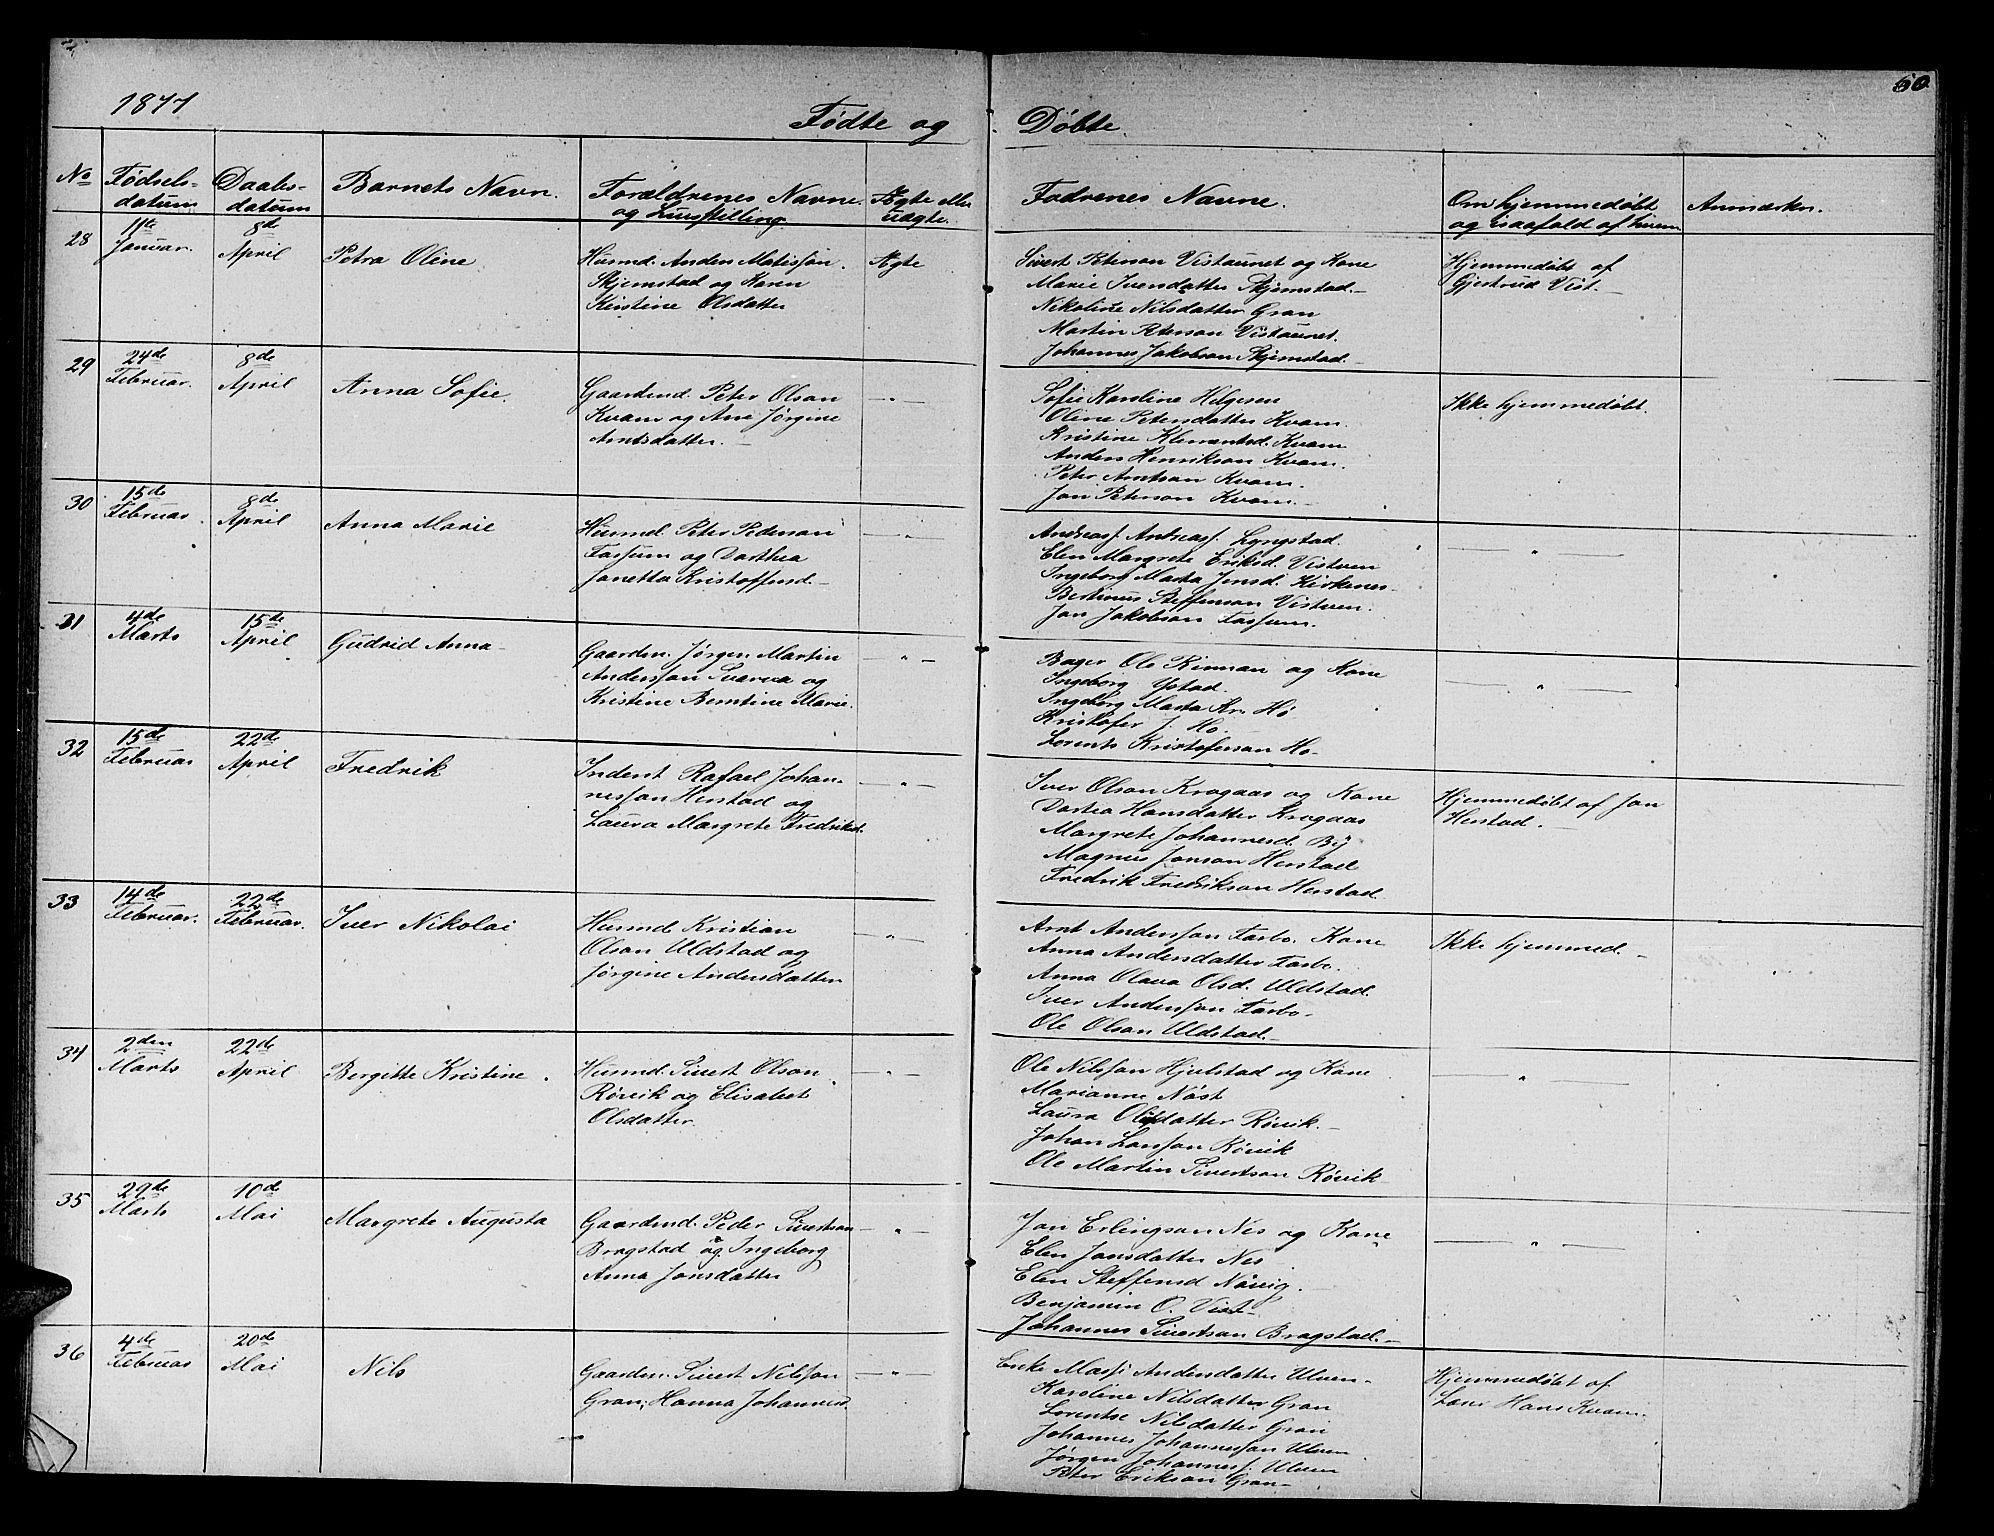 1877
Fødte og Døbte.
60
No
Fødsels-
datum
Daabs-
datum
Barnets Navn.
Forældrenes Navne
og Livsstilling
Ægte eller
uægte.
Fadrenes Navne.
Om hjemmedøbt
og isaafald af hvem
Anmærkn.
28
11te
Januar.
8de
April
Petra Oline
Husmd. Anders Matisson
Skjemstad og Karen
Kristine Olsdatter
Ægte
Sivert Peterson Vistaunet og Kone
Marie Iversdatter Skjemstad.-
Nikoline Nilsdatter Gran
Martin Peterson Vistaunet.
Johannes Jakobson Skjemstad.-
Hjemmedøbt af
Gjertrud Vist.-
29
24de
Februar.
8de
April
Anna Sofie.
Gaardmd. Peter Olson
Kvam og Ane Jørgine
Arntsdatter.-
— " —
Sofie Karoline Helgesen
Oline Petersdatter Kvam.
Kristine Klemetsd. Kvam
Anders Henrikson Kvam.
Peter Arntson Kvam.
Jon Peterson Kvam.-
Ikke hjemmedøbt.
30
15de
Februar.
8de
April
Anna Marie
Husmd. Peter Pederson
Fossum og Dorthea
Janetta Kristoffersd.-
— " —
Andreas J. Andreass. Lyngstad.
Elen Margrete Eriksd. Vistven
Ingeborg Marta Jensd. Kirkenes-
Bertinus Steffenson Vistven.
Jon Jakobson Fossum.
— " —
31
4de
Marts
15de
April
Gudrid Anna-
Gaardm. Jørgen Martin
Andersson Svarva og
Kristine Berntine Marie.
— " —
Bager Ole Rinnan og Kone
Ingeborg Ystad.
Ingeborg Marta Kr. Hø
Kristofer J. Hø-
Lorents Kristoferson Hø-
— " —
32
15de
Februar
22de
April
Fredrik
Inderst Rafael Johan-
nesson Herstad og
Laura Margrete Fredriksd.
— " —
Iver Olson Krogaas og Kone
Dortea Hansdatter Krogaas
Margrete Johannesd. By
Magnus Jonson Herstad
Fredrik Fredrikson Herstad.
Hjemmedøbt af Jon
Herstad.-
33
14de
Februar.
22de
Februar.
Iver Nikolai
Husmd Kristian
Olson Uldstad og
Jørgine Andersdatter
— " —
Arnt Andersson Farbo. Kone
Anna Andersdatter Farbo.
Anna Olava Olsd. Uldstad.
Iver Andersson Farbo.
Ole Olson Uldstad.-
Ikke hjemmed.-
34
2den
Marts
22de
April
Bergitte Kristine.
Husmd. Sivert Olson
Røvik og Elisabet
Olsdatter.
— " —
Ole Nilsson Hjelstad og Kone
Marianne Nøst
Laura Olsdatter Røvik.-
Johan Larsson Røvik
Ole Martin Sivertson Røvik-
— " —
35
29de
Marts
10de
Mai
Margrete Augusta
Gaardmd. Peder Sivertson
Bragstad og Ingeborg
Anna Jonsdatter
— " —
Jon Erlingson Nes og Kone
Elen Jonsdatter Nes
Elen Steffensd Nøvig.
Benjamin O. Vist-
Johannes Sivertson Bragstad.-
— " —
36
4de
Februar
20de
Mai
Nils
Gaardm. Sivert Nilsson
Gran, Hanna Johannesd.
— " —
Enke Massi Andersdatter Ulven-
Karoline Nilsdatter Gran
Lorentse Nilsdatter Gran
Johannes Johannesson Ulven
Jørgen Johanness. Ulven
Peter Erikson Gran-
Hjemmedøbt af
Hans Kvam.